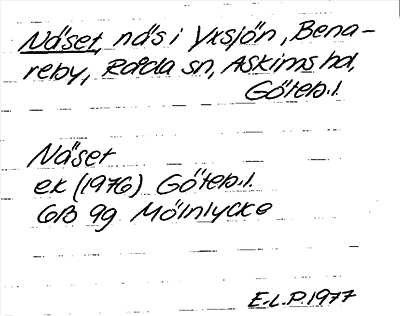 Näset, näs i Yxsjön, Bena-
reby, Råda sn, Askims hd,
Göteb.l.
Näset
ek (1976) Göteb.l.
6B 9g Mölnlycke
E.L.P.1977